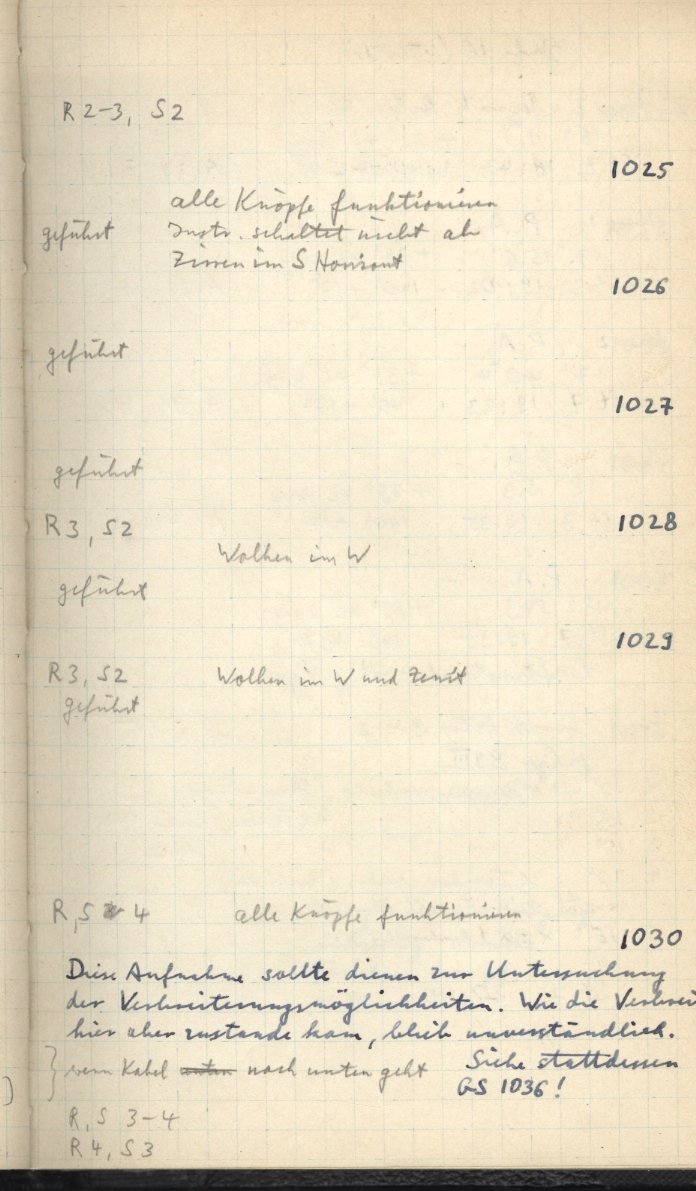 R 2-3, S2
1025
alle Knöpfe funktionieren
geführt Instr. schaltet nicht ab
Zirren im S Horizont
1026
geführt
1027
geführt
R3, S2 1028
Wolken im W
geführt
1029
R3, S2 Wolken im W und Zenit
geführt
R, S 4 alle Knöpfe funktionieren
1030
Diese Aufnahme sollte dienen zur Untersuchung
der Verbreiterungsmöglichkeiten. Wie die Verbrei
hier aber zustande kam, blieb unverständlich.
wenn Kabel unten nach unten geht Siehe stattdessen
GS 1036!
R, S 3-4
R4, S3